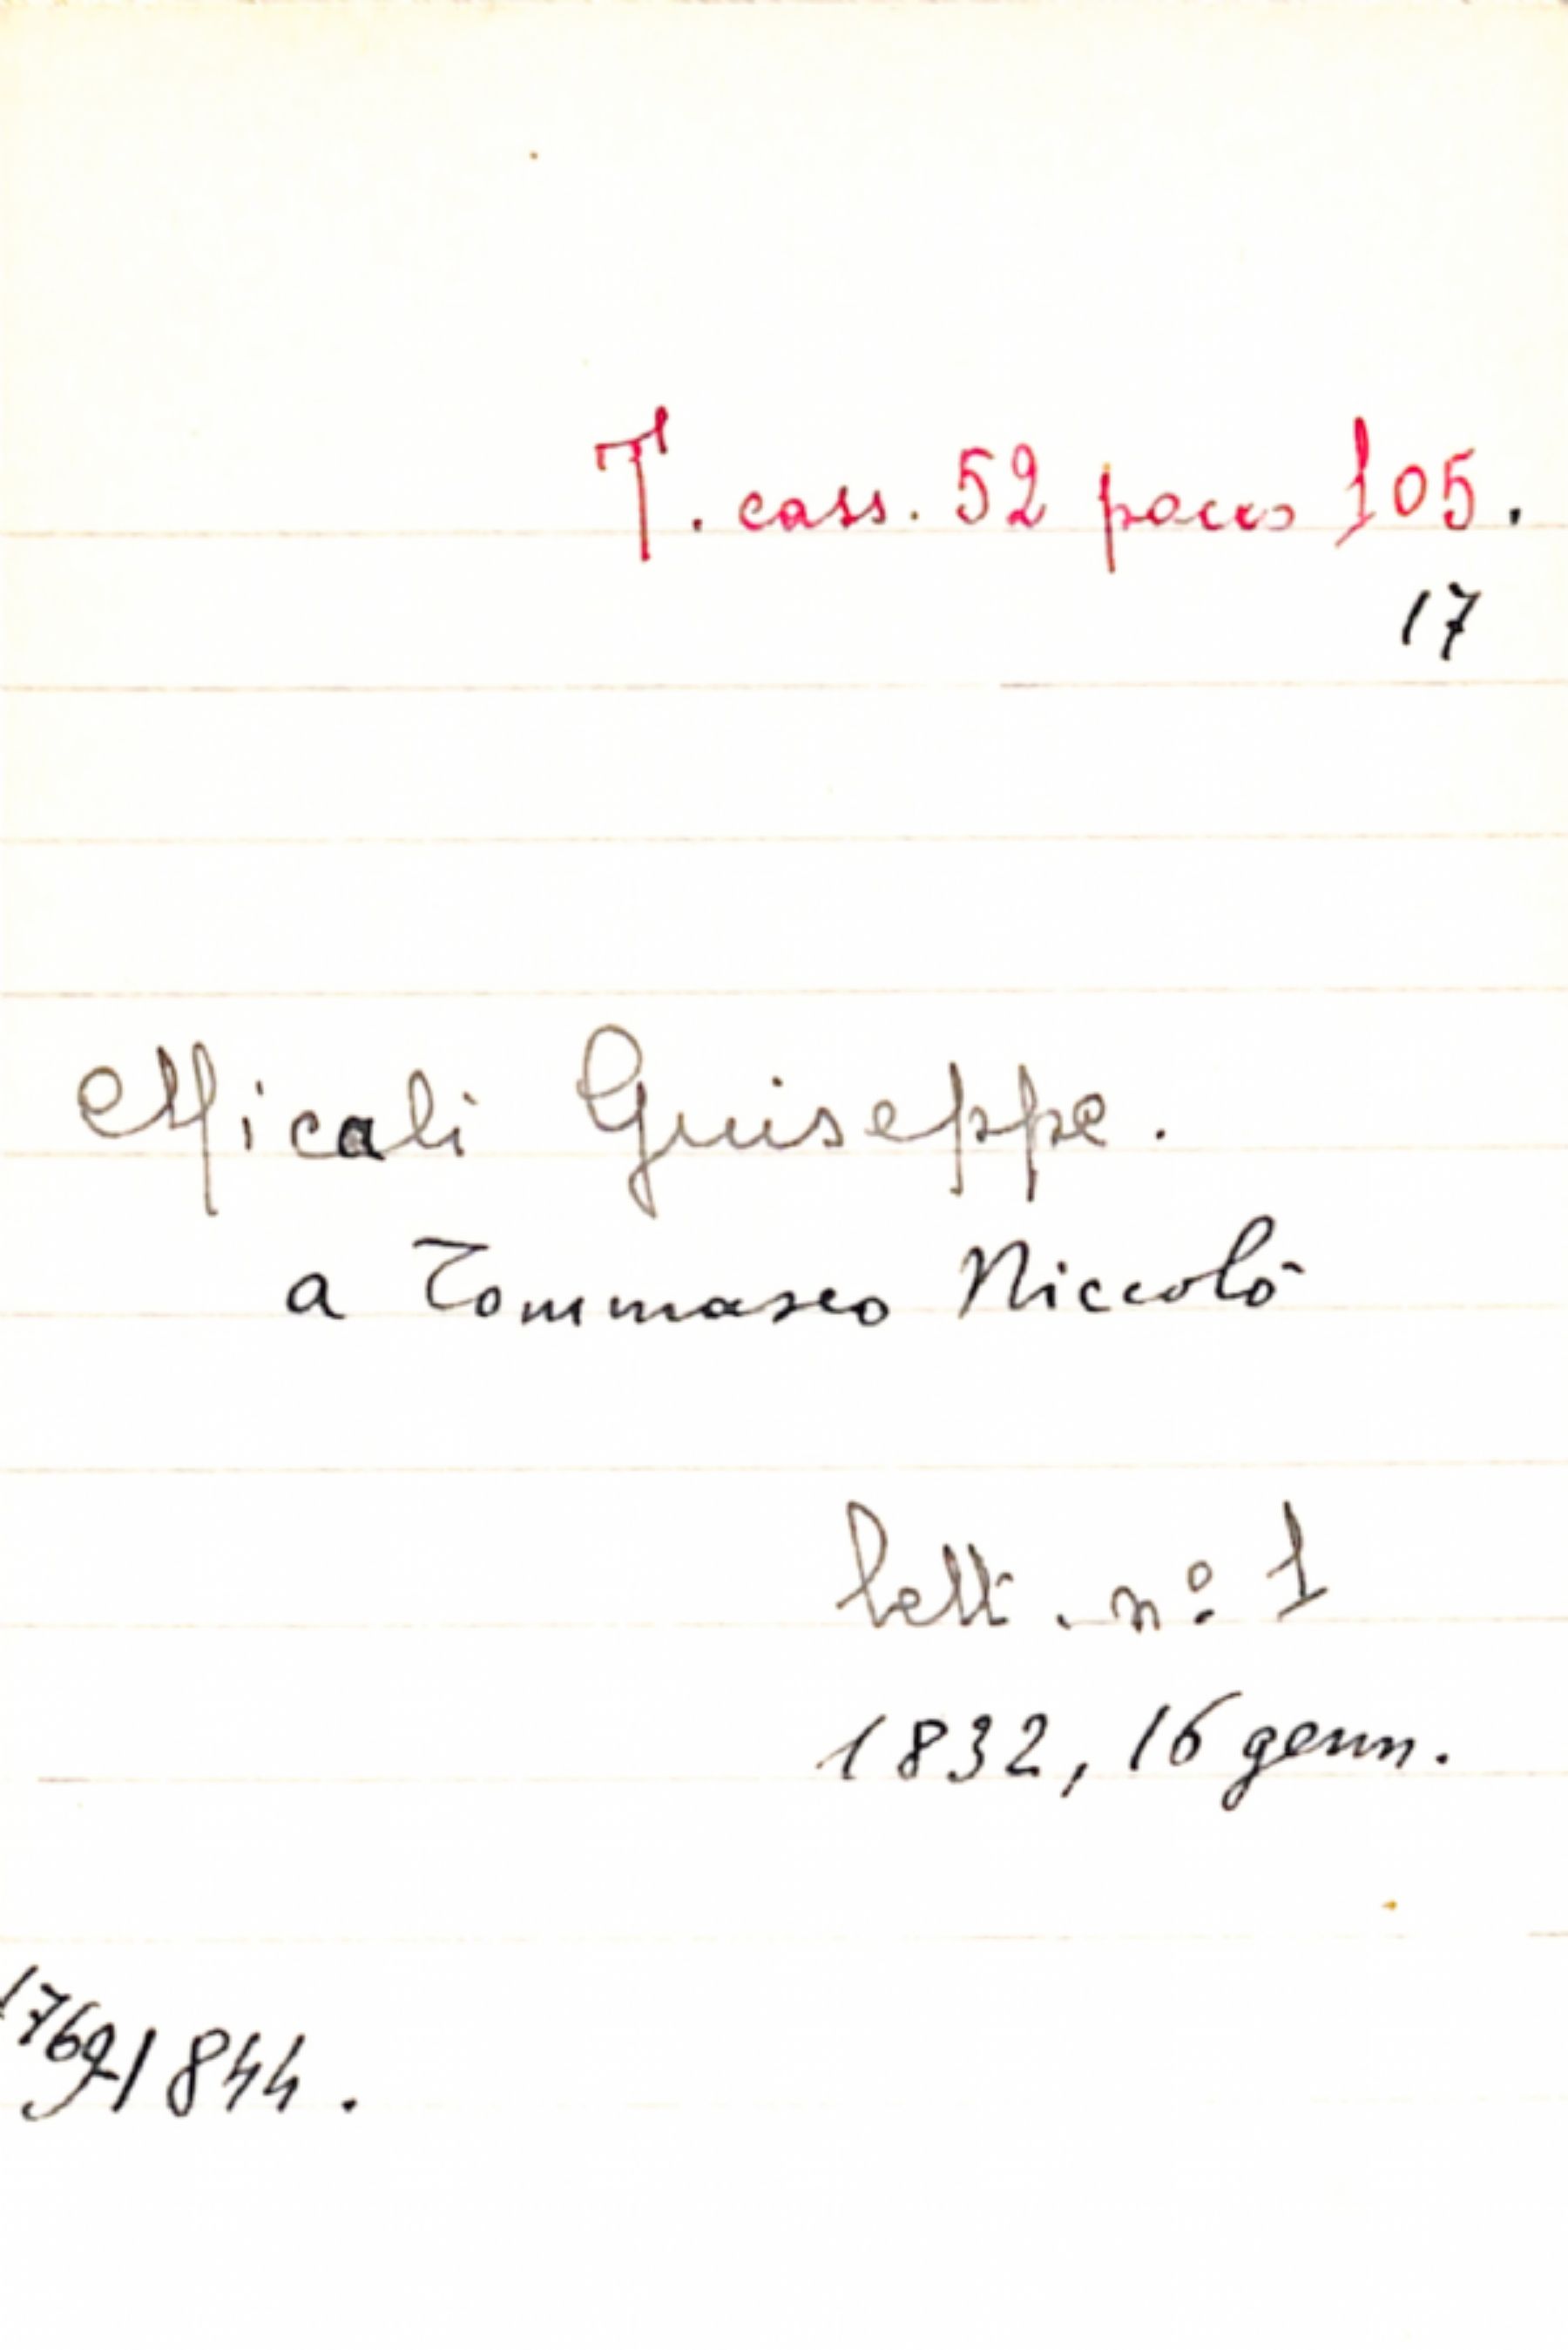 T. cass. 52 pacco 105.
17
Micali Giuseppe.
a Tommaseo Niccolò
lett. nº 1
1832, 16 genn.
1769-1844.